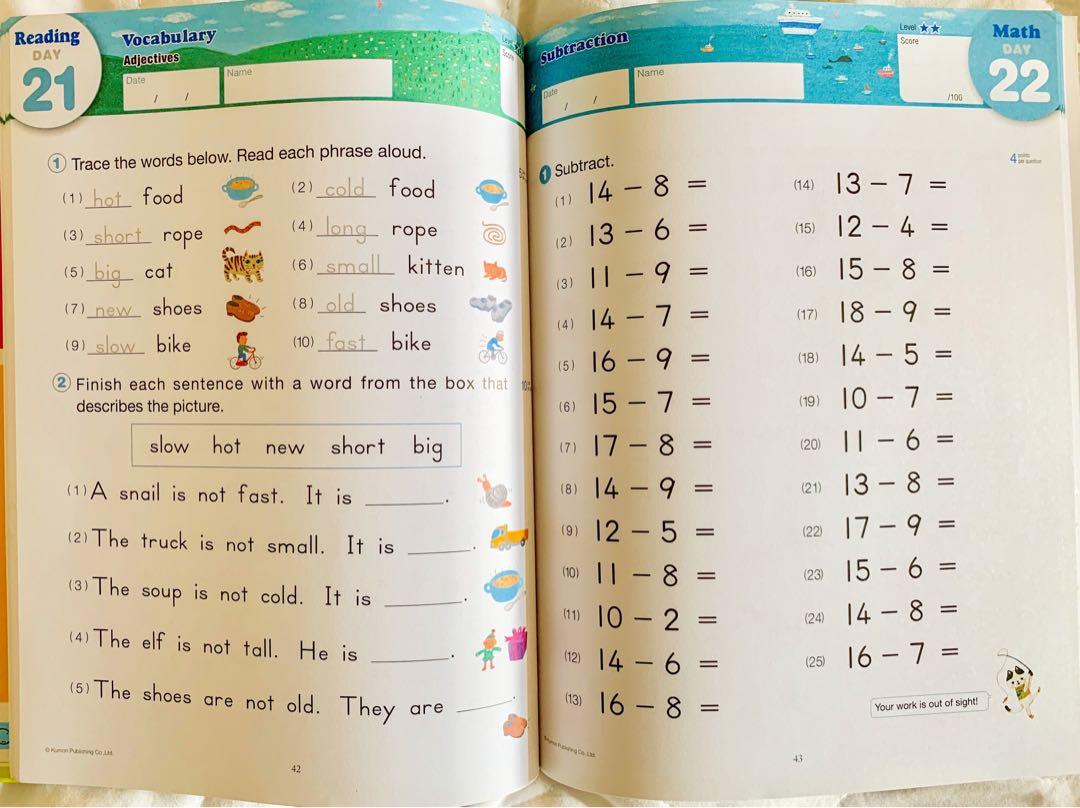 Reading
DAY
21
Vocabulary
Adjectives
Date
/ /
Name
Score
1 Trace the words below. Read each phrase aloud.
(1) hot food
(2) cold food
(3) short rope
(4) long rope
(5) big cat
(6) small kitten
(7) new shoes
(8) old shoes
(9) slow bike
(10) fast bike
2 Finish each sentence with a word from the box that
describes the picture.
slow hot new short big
(1) A snail is not fast. It is ________.
(2) The truck is not small. It is ________.
(3) The soup is not cold. It is ________.
(4) The elf is not tall. He is ________.
(5) The shoes are not old. They are ________.
© Kumon Publishing Co., Ltd.
42
Subtraction
Date
/ /
Name
Level ★★
Score
/100
Math
DAY
22
1 Subtract.
4 points per question
(1) 14 − 8 =
(2) 13 − 6 =
(3) 11 − 9 =
(4) 14 − 7 =
(5) 16 − 9 =
(6) 15 − 7 =
(7) 17 − 8 =
(8) 14 − 9 =
(9) 12 − 5 =
(10) 11 − 8 =
(11) 10 − 2 =
(12) 14 − 6 =
(13) 16 − 8 =
(14) 13 − 7 =
(15) 12 − 4 =
(16) 15 − 8 =
(17) 18 − 9 =
(18) 14 − 5 =
(19) 10 − 7 =
(20) 11 − 6 =
(21) 13 − 8 =
(22) 17 − 9 =
(23) 15 − 6 =
(24) 14 − 8 =
(25) 16 − 7 =
Your work is out of sight!
Kumon Publishing Co., Ltd.
43